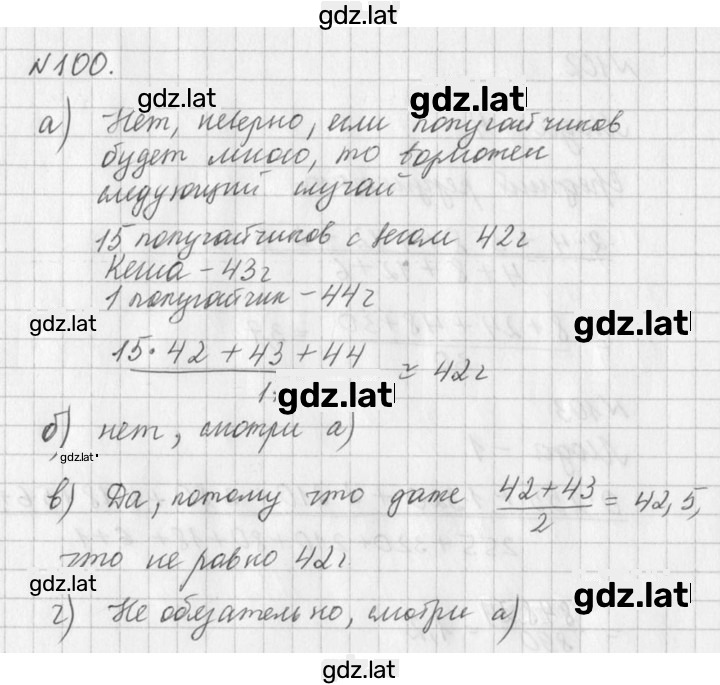 gdz.lat
№100.
gdz.lat
gdz.lat
а) Нет, неверно, если попугайчиков
будет много, то возможен
следующий случай
15 попугайчиков с весом 42г
Кеша - 43г
1 попугайчик - 44г
gdz.lat
gdz.lat
15·42 + 43 + 44
≈ 42г
gdz.lat
б) нет, смотри а)
gdz.lat
в) Да, потому что даже (42+43)/2 = 42,5,
что не равно 42г
gdz.lat
gdz.lat
г) Не обязательно, смотри а)
gdz.lat